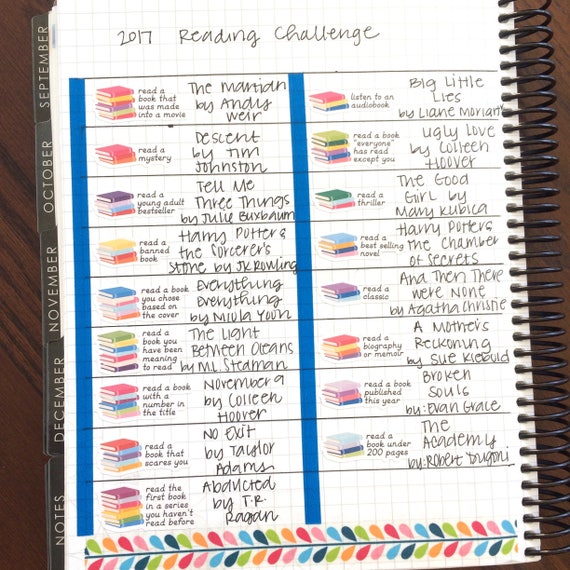 2017 Reading Challenge
read a
book that
was made
into a movie
The Martian
by Andy
Weir
read a
mystery
Descent
by Tim
Johnston
read a
young adult
bestseller
Tell Me
Three Things
by Julie Buxbaum
read a
banned
book
Harry Potter &
the Sorcerer's
Stone by JK Rowling
read a book
you chose
based on
the cover
Everything
Everything
by Nicola Yoon
read a
book you
have been
meaning
to read
The Light
Between Oceans
by M.L. Steaman
read a book
with a
number in
the title
November 9
by Colleen
Hoover
read a
book that
scares you
NO EXIT
by Taylor
Adams
read the
first book
in a series
you haven't
read before
Abducted
by T.R.
Ragan
listen to an
audiobook
Big Little
Lies
by Liane Moriarty
read a book
"everyone"
has read
except you
Ugly Love
by Colleen
Hoover
read a
thriller
The Good
Girl by
Mary Kubica
read a
best selling
novel
Harry Potter &
the Chamber
of Secrets
read a
classic
And Then There
were None
by Agatha Christie
read a
biography
or memoir
A Mother's
Reckoning
by Sue Klebold
read a book
published
this year
Broken
Souls
by: Evan Grace
read a
book under
200 pages
The
Academy
by: Robert Dugoni
SEPTEMBER
OCTOBER
NOVEMBER
DECEMBER
NOTES